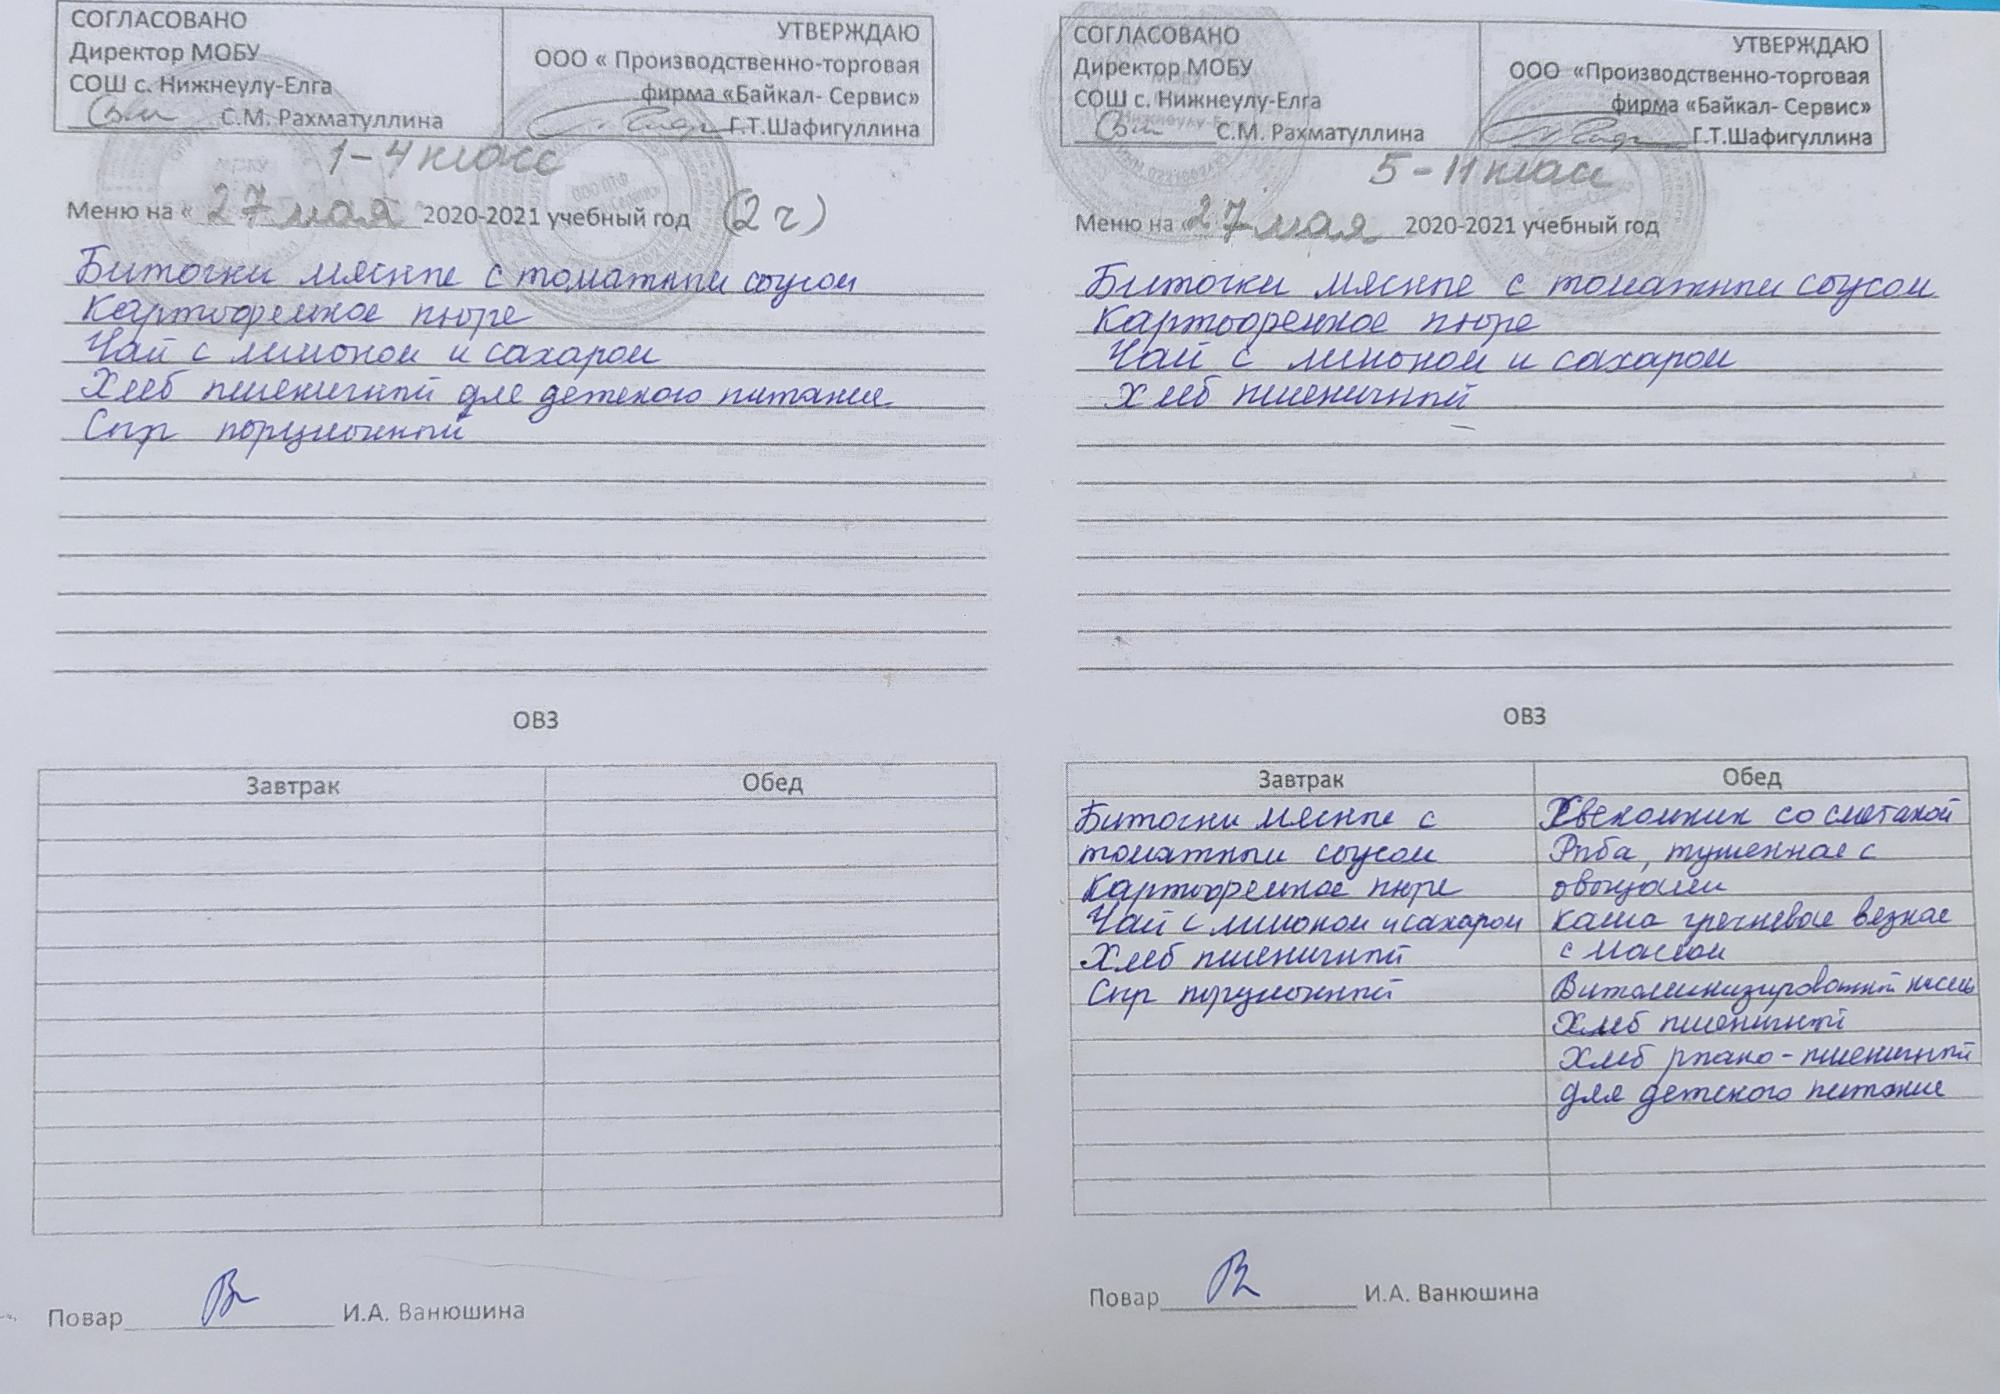 СОГЛАСОВАНО
Директор МОБУ
СОШ с. Нижнеулу-Елга
С.М. Рахматуллина
УТВЕРЖДАЮ
ООО « Производственно-торговая
фирма «Байкал- Сервис»
Г.Т.Шафигуллина
1-4 класс
Меню на « 27 мая 2020-2021 учебный год (2 ч)
Биточки мясные с томатным соусом
Картофельное пюре
Чай с лимоном и сахаром
Хлеб пшеничный для детского питания
Сыр порционный
ОВЗ
Завтрак
Обед
Повар И.А. Ванюшина
СОГЛАСОВАНО
Директор МОБУ
СОШ с. Нижнеулу-Елга
С.М. Рахматуллина
УТВЕРЖДАЮ
ООО «Производственно-торговая
фирма «Байкал- Сервис»
Г.Т.Шафигуллина
5-11 класс
Меню на « 27 мая 2020-2021 учебный год
Биточки мясные с томатным соусом
Картофельное пюре
Чай с лимоном и сахаром
Хлеб пшеничный
ОВЗ
Завтрак
Биточки мясные с
томатным соусом
Картофельное пюре
Чай с лимоном и сахаром
Хлеб пшеничный
Сыр порционный
Обед
Свекольник со сметаной
Рыба, тушенная с
овощами
каша гречневая вязкая
с маслом
Витаминизированный кисель
Хлеб пшеничный
Хлеб ржано-пшеничный
для детского питания
Повар И.А. Ванюшина